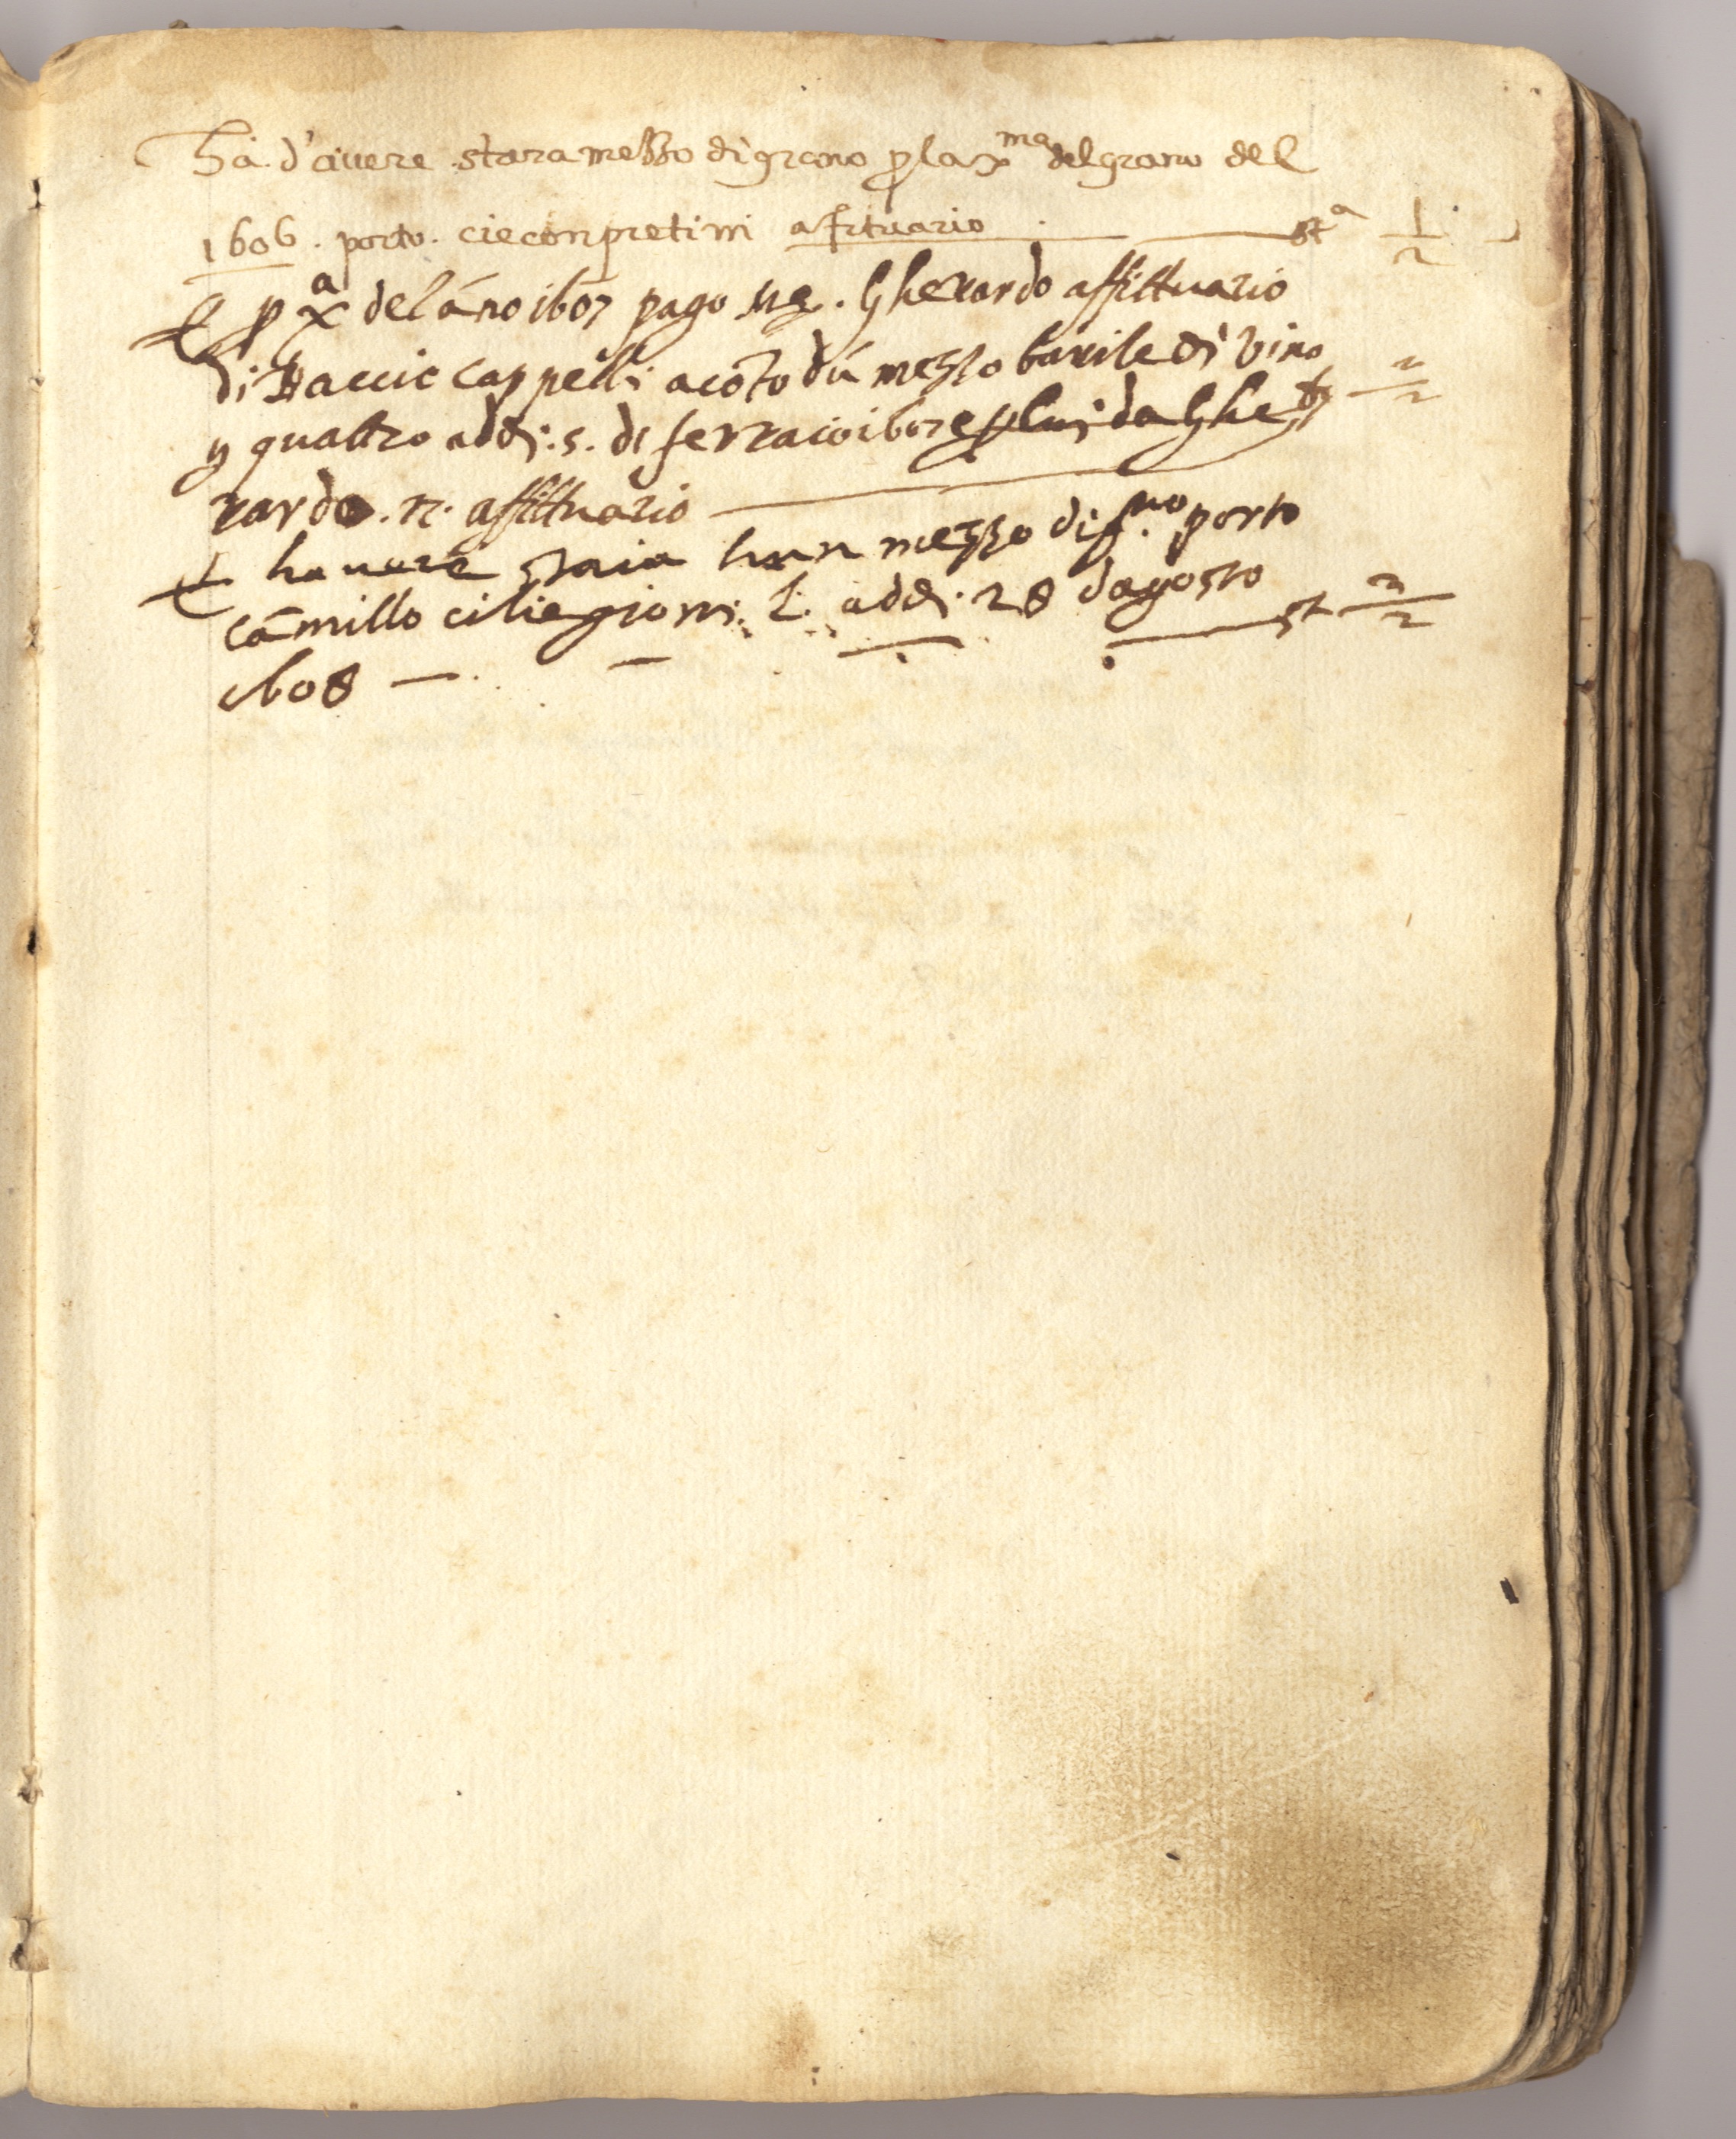 Ha d'avere stara mezzo di grano p la xma del grano del
1606 . porto . cieconpretini afituario st a 1/2
E p xa del áno 1607 pago Gherardo affittuario
di Baccio Cappelli acóto dú mezzo barile di vino
quattro addi . 5 . di ferraio 1607 e p lui da Ghe
rardo . affittuario
E havere staia hun mezzo di g.no porto
Camillo ciliegioni . addi . 28 dagosto st 1/2
1608